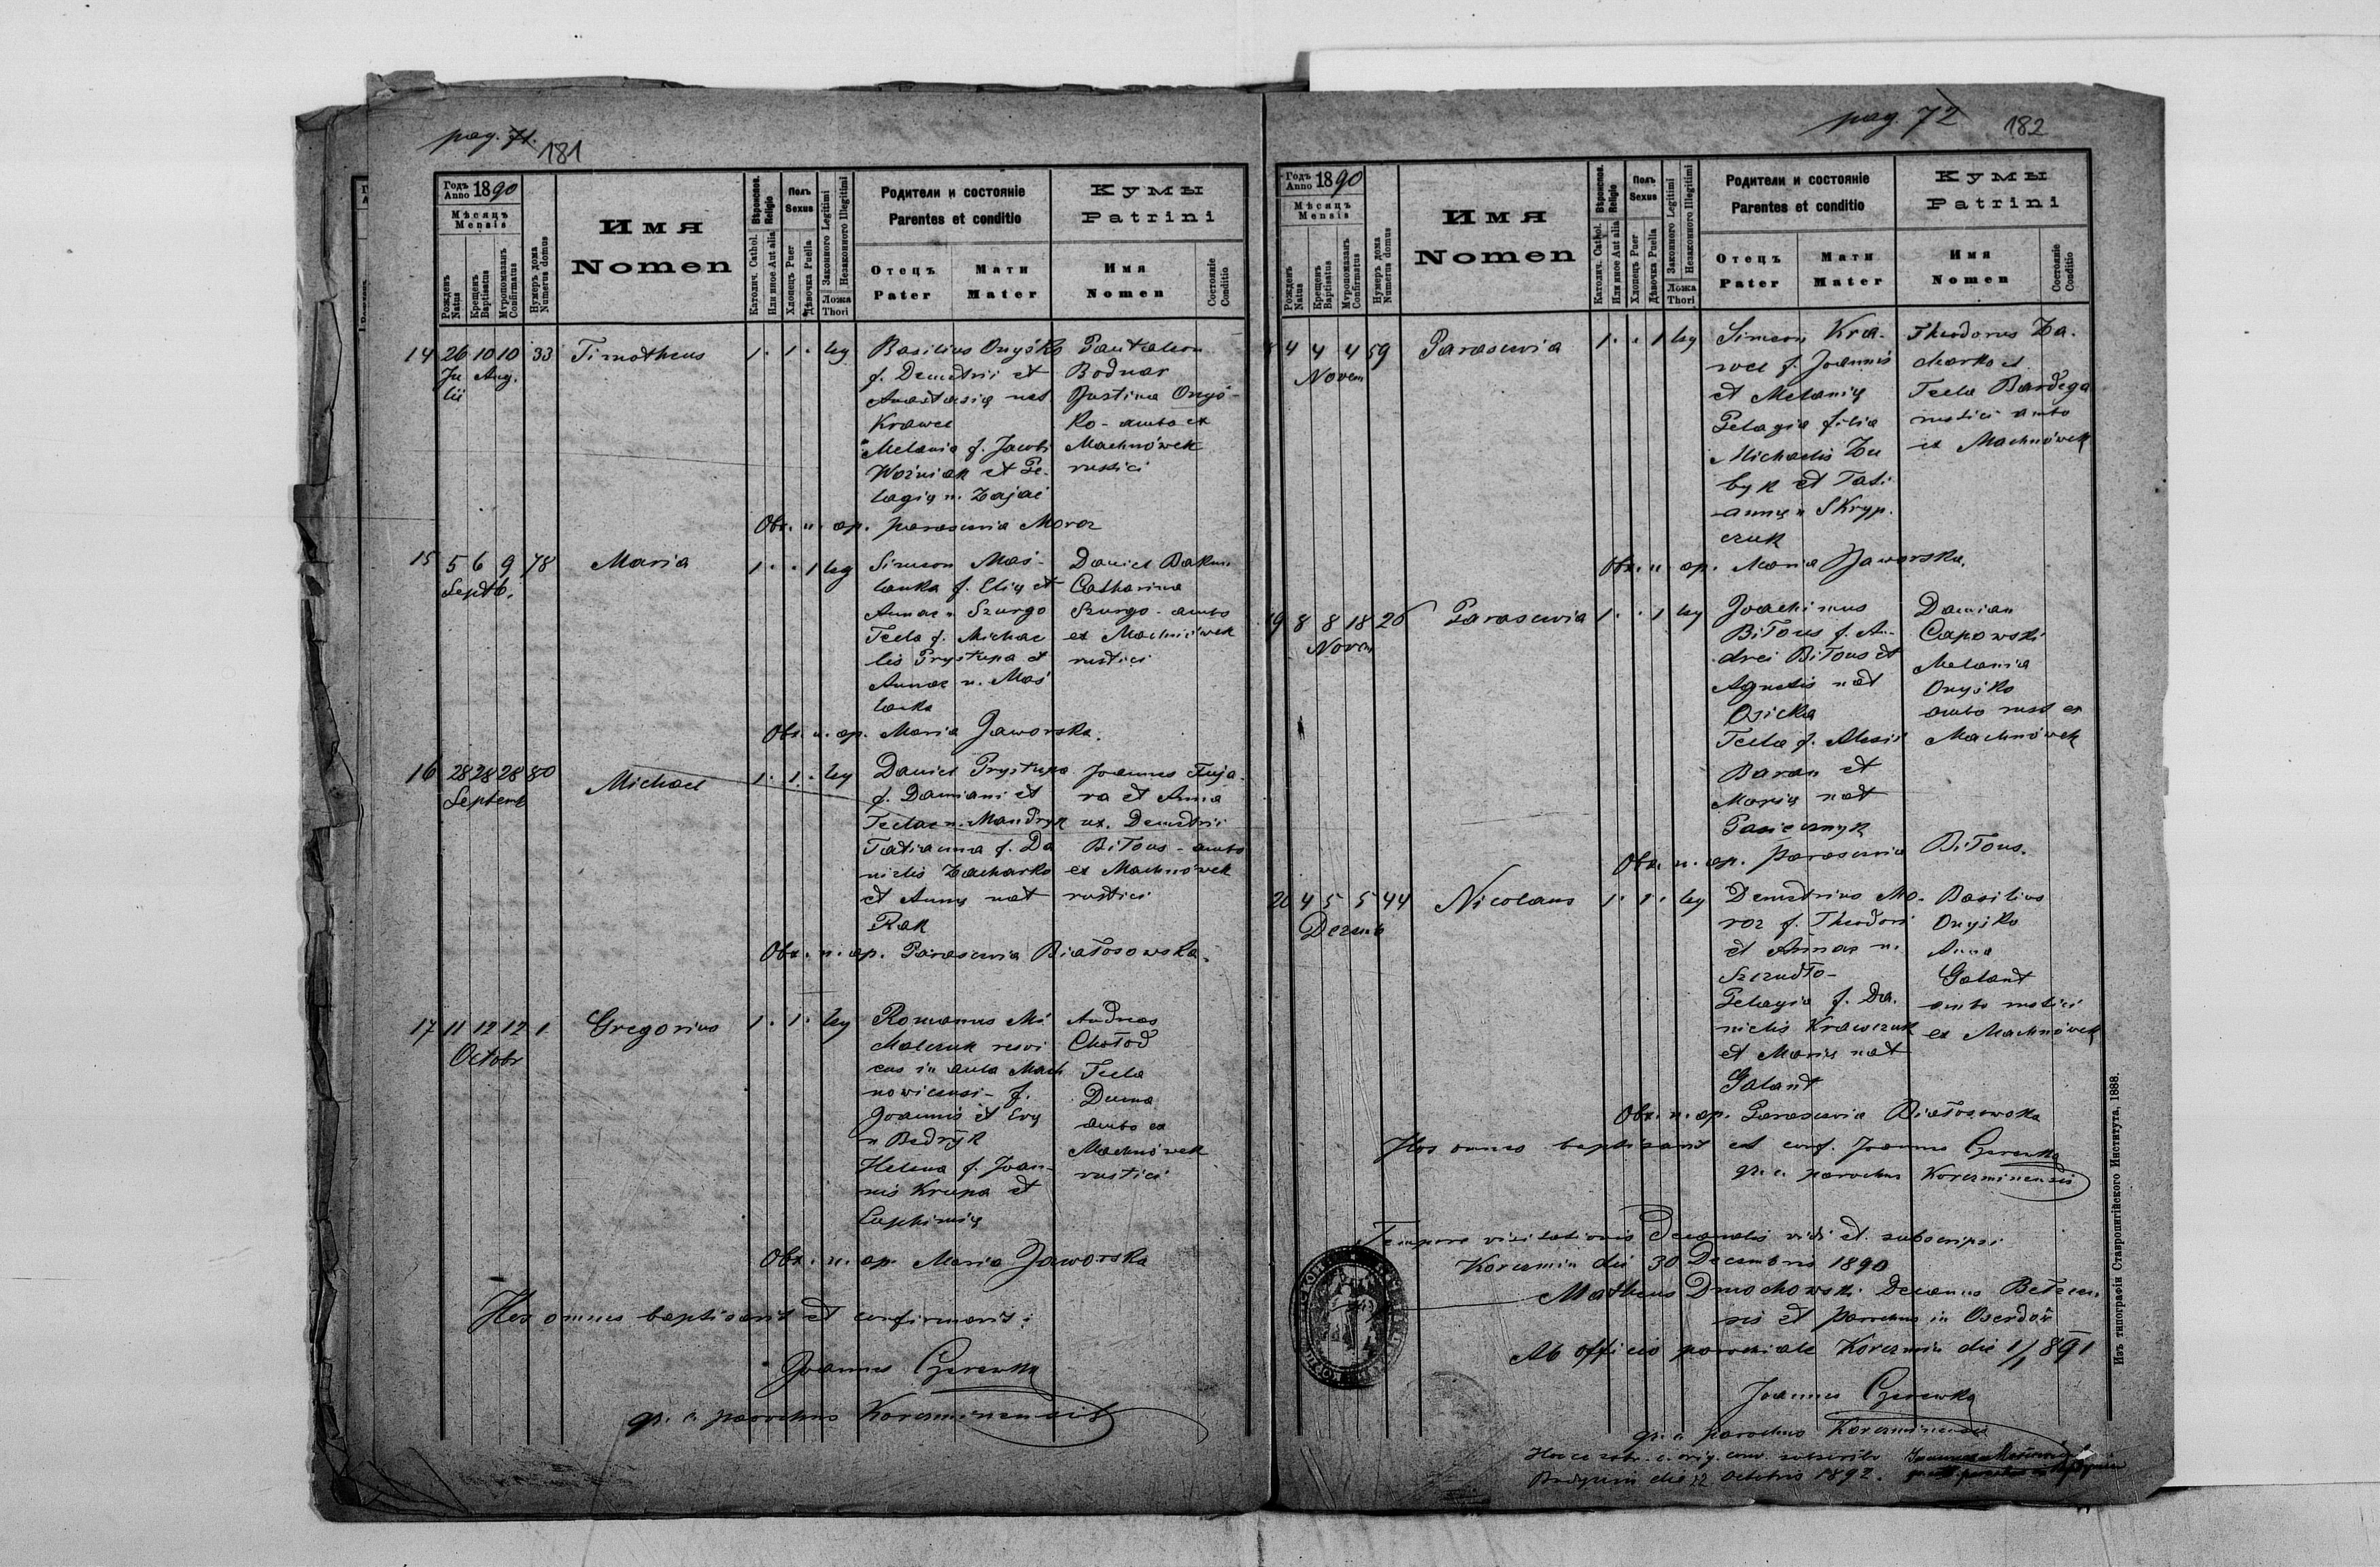 pag. 71.
181
Годъ Anno 1890
Мѣсяцъ
Mensis
Рожденъ Natus
Крещенъ Baptisatus
Мѵропомазанъ Confirmatus
Нумеръ дома Numerus domus
Имя
Nomen
Вѣроиспов. Religio
Католич. Cathol.
Или иное Aut alia
Полъ
Sexus
Хлопецъ Puer
Дѣвочка Puella
Законного Legitimi
Незаконного Illegitimi
Ложа
Thori
Родители и состояніе
Parentes et conditio
Отецъ
Pater
Мати
Mater
Кумы
Patrini
Имя
Nomen
Состояніе
Conditio
14 26 10 10 33 Timotheus 1 · 1 · leg
Julii Aug.
Basilius Onyśko
f. Demetrii et
Anastasię nat
Krawec
Melania f. Jacobi
Woźniak et Pe-
lagię n. Zając
Pantaleon
Bodnar
Justina Onyś-
ko - ambo ex
Machnówek
rustici
Obs. n. ap. Parascevia Moroz
15 5 6 9 78 Maria 1 · · 1 leg
Septb.
Simeon Maś-
lanka f. Elię et
Annae n Szurgo
Tecla f. Michae
lis Prystupa et
Annae n. Maś
lanka
Daniel Bakun
Catharina
Szurgo - ambo
ex Machnówek
rustici
Obs. n. ap. Maria Jaworska.
16 28 28 28 80 Michael 1 · 1 · leg
Septemb
Daniel Prystupa
f. Damiani et
Teclae n. Mandryk
Tatianna f. Da
nielis Zacharko
et Annę nat
Rak
Joannes Fuja-
ra et Anna
ux. Demetrii
Biłous - ambo
ex Machnówek
rustici
Obs. n. ap. Parascevia Białosowska.
17 11 12 12 1 Gregorius 1 · 1 · leg
Octobr
Romanus Mi
chalczuk
in aula Mach
nowicensi - f.
Joannis et Evę
n Bedryk
Helena f. Joan-
nis Krupa et
Euphimię
Andreas
Chołod
Tecla
Duma
ambo ex
Machnówek
rustici
Obs. n. ap. Maria Jaworska
Hos omnes baptisavit et confirmavit:
Joannes Czerewka
gr. c. parochus Korczminensis
pag. 72
182
Годъ Anno 1890
Мѣсяцъ
Mensis
Рожденъ Natus
Крещенъ Baptisatus
Мѵропомазанъ Confirmatus
Нумеръ дома Numerus domus
Имя
Nomen
Вѣроиспов. Religio
Католич. Cathol.
Или иное Aut alia
Полъ
Sexus
Хлопецъ Puer
Дѣвочка Puella
Законного Legitimi
Незаконного Illegitimi
Ложа
Thori
Родители и состояніе
Parentes et conditio
Отецъ
Pater
Мати
Mater
Кумы
Patrini
Имя
Nomen
Состояніе
Conditio
4 4 4 59 Parascevia 1 · · 1 leg
Novem
Simeon Kra-
wec f. Joannis
et Melanię
Pelagia filia
Michaelis Zu
byk et Tati-
annię n Skryp-
czuk
Theodorus Za-
charko et
Tecla Bardyga
rustici ambo
ex Machnówek
Obs. n ap. Maria Jaworska.
19 8 8 18 26 Parascevia 1 · · 1 leg
Novem
Joachimus
Biłous f. An-
drei Biłous et
Agnetis nat
Osicka
Tecla f. Alexii
Baran et
Marię nat
Pasicznyk
Damian
Capowski
Melania
Onyśko
ambo rust ex
Machnówek
Obs. n. ap. Parascevia Biłous.
20 4 5 5 44 Nicolaus 1 · 1 · leg
Decemb
Demetrius Mo-
roz f. Theodori
et Annae n.
Szczudło-
Pelagia f. Da-
nielis Krawczuk
et Marię nat
Galant
Basilius
Onyśko
Anna
Galant
ambo rustici
ex Machnówek
Obs. n. ap. Parascevia Białosowska
Hos omnes baptisavit et conf. Joannes Czerewka
gr. c. parochus Korczminensis
Tempore visitationis Decanalis vidi et subscripsi
Korczmin die 30 Decembris 1890
Matheus Dmochowski Decanus Bełzen-
sis et Parochus in Oserdów
Ab officio parochiale Korczmin die 1/1 891
Joannes Czerewka
gr. c. parochus Korczminensis
die 12 Octobris 1892.
Изъ типографіи Ставропигійского Института, 1888.